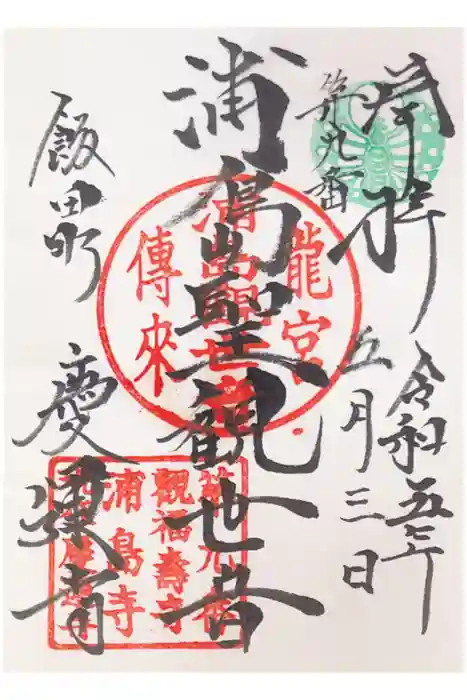 奉拝
令和五年
五月三日
第九番
浦島聖観世音
飯田町
慶運寺
龍宮
浦島觀世音
傳來
第九番
觀福壽寺
浦島寺